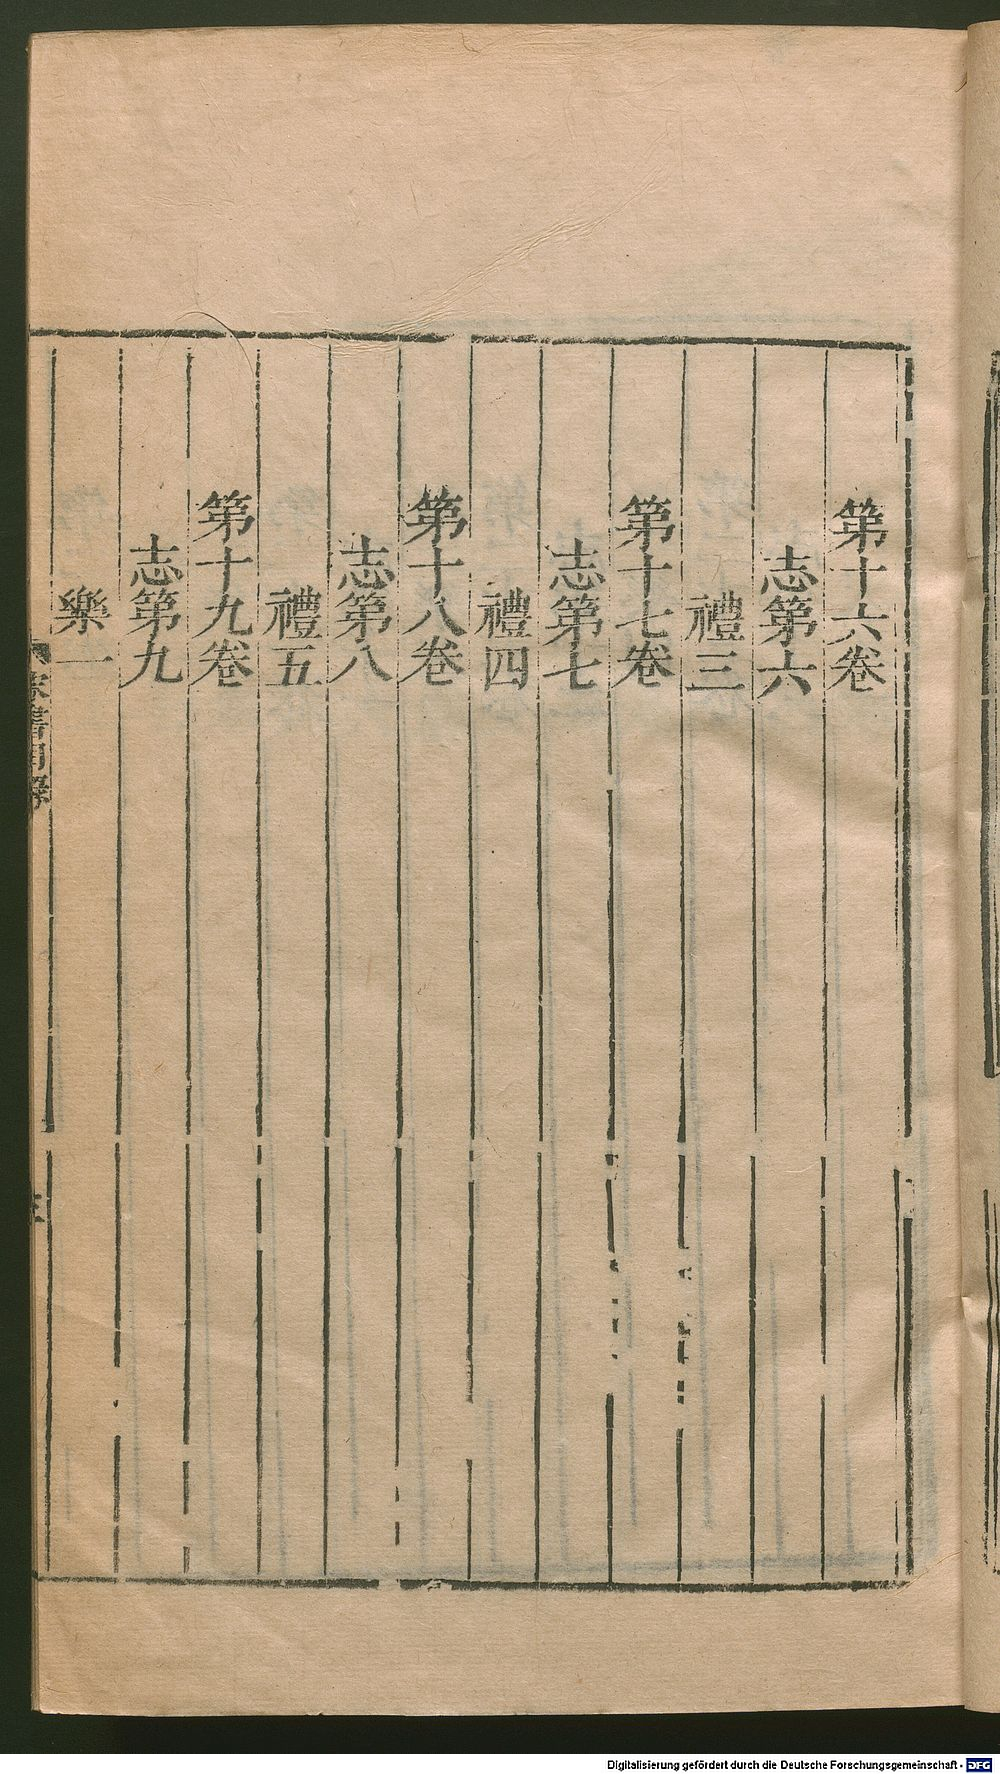 第十六卷
志第六
禮三
第十七卷
志第七
禮四
第十八卷
志第八
禮五
第十九卷
志第九
樂一
書目錄
Digitalisierung gefördert durch die Deutsche Forschungsgemeinschaft - DFG